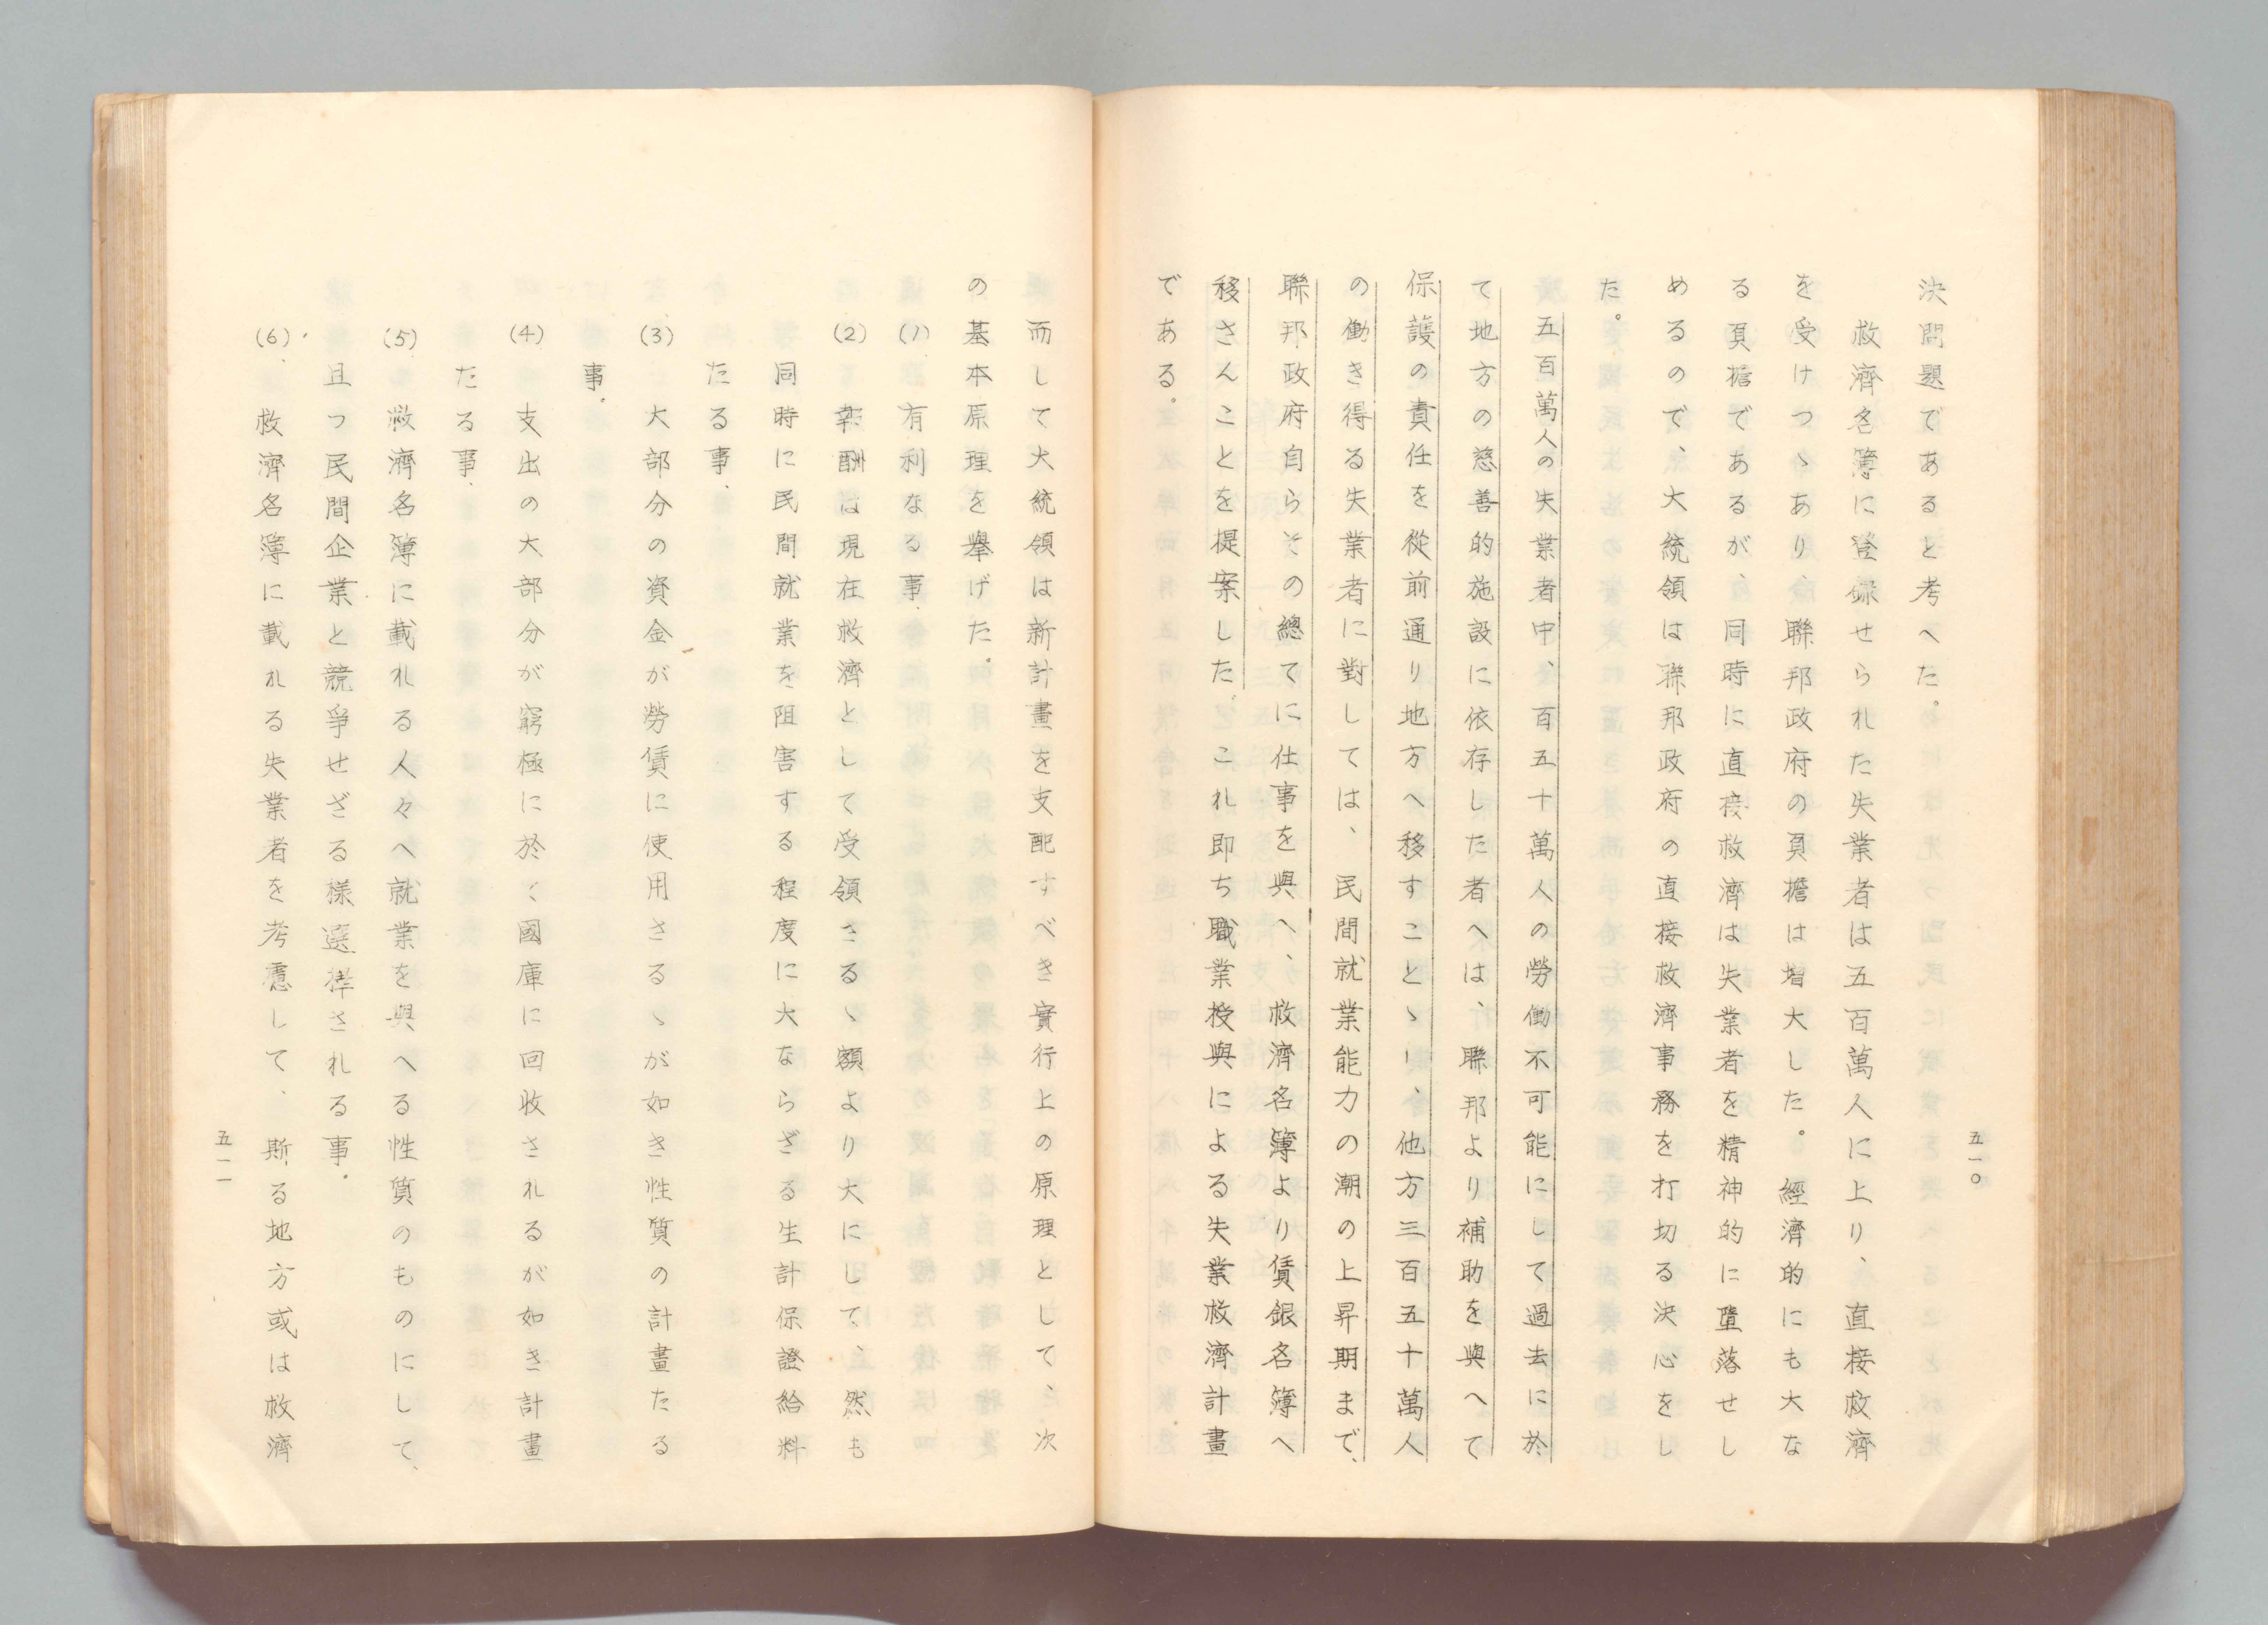 五一〇
決問題であると考へた。
救濟名簿に登録せられた失業者は五百萬人に上り、直接救濟
を受けつゝあり、聯邦政府の負擔は増大した。經濟的にも大な
る負擔であるが、同時に直接救濟は失業者を精神的に墮落せし
めるので、大統領は聯邦政府の直接救濟事務を打切る決心をし
た。
五百萬人の失業者中、百五十萬人の勞働不可能にして過去に於
て地方の慈善的施設に依存した者へは、聯邦より補助を與へて
保護の責任を從前通り地方へ移すことゝし、他方三百五十萬人
の働き得る失業者に對しては、民間就業能力の潮の上昇期まで、
聯邦政府自らその總てに仕事を與へ、救濟名簿より賃銀名簿へ
移さんことを提案した。これ即ち職業授與による失業救濟計畫
である。
而して大統領は新計畫を支配すべき實行上の原理として、次
の基本原理を擧げた。
(1) 有利なる事、
(2) 報酬は現在救濟として受領さるゝ額より大にして、然も
同時に民間就業を阻害する程度に大ならざる生計保證給料
たる事、
(3) 大部分の資金が勞賃に使用さるゝが如き性質の計畫たる
事。
(4) 支出の大部分が窮極に於く國庫に回收されるが如き計畫
たる事、
(5) 救濟名簿に載れる人々へ就業を與へる性質のものにして、
且つ民間企業と競爭せざる樣選擇される事。
(6) 救濟名簿に載れる失業者を考慮して、斯る地方或は救濟
五一一